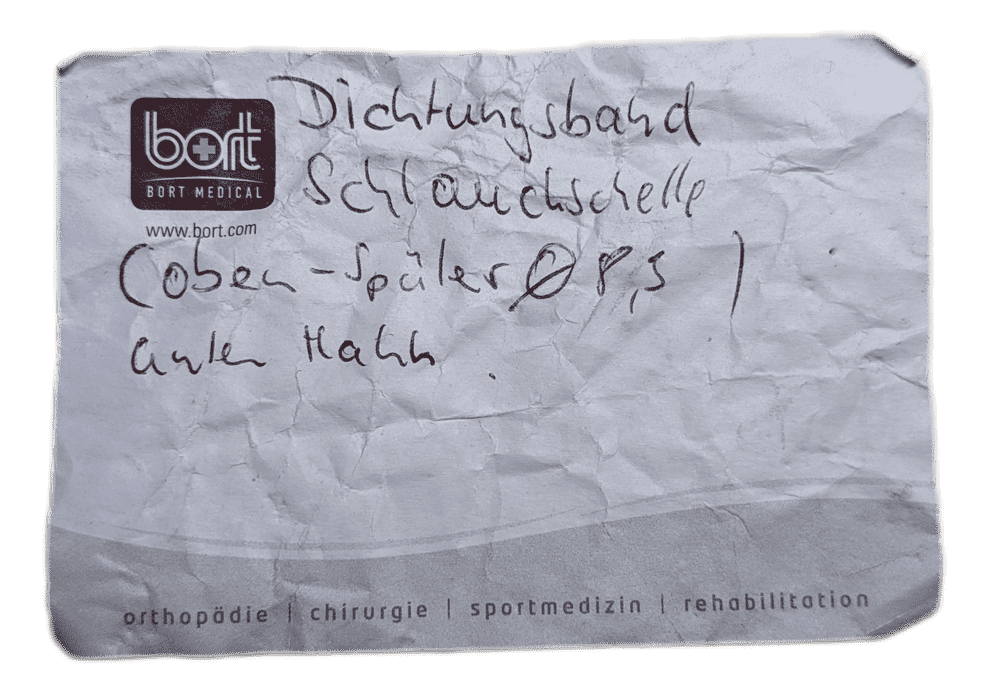 bort
BORT MEDICAL
www.bort.com
Dichtungsband
Schlauchschelle
(oben - Später Ø 8,5 )
unten Hahn
orthopädie | chirurgie | sportmedizin | rehabilitation